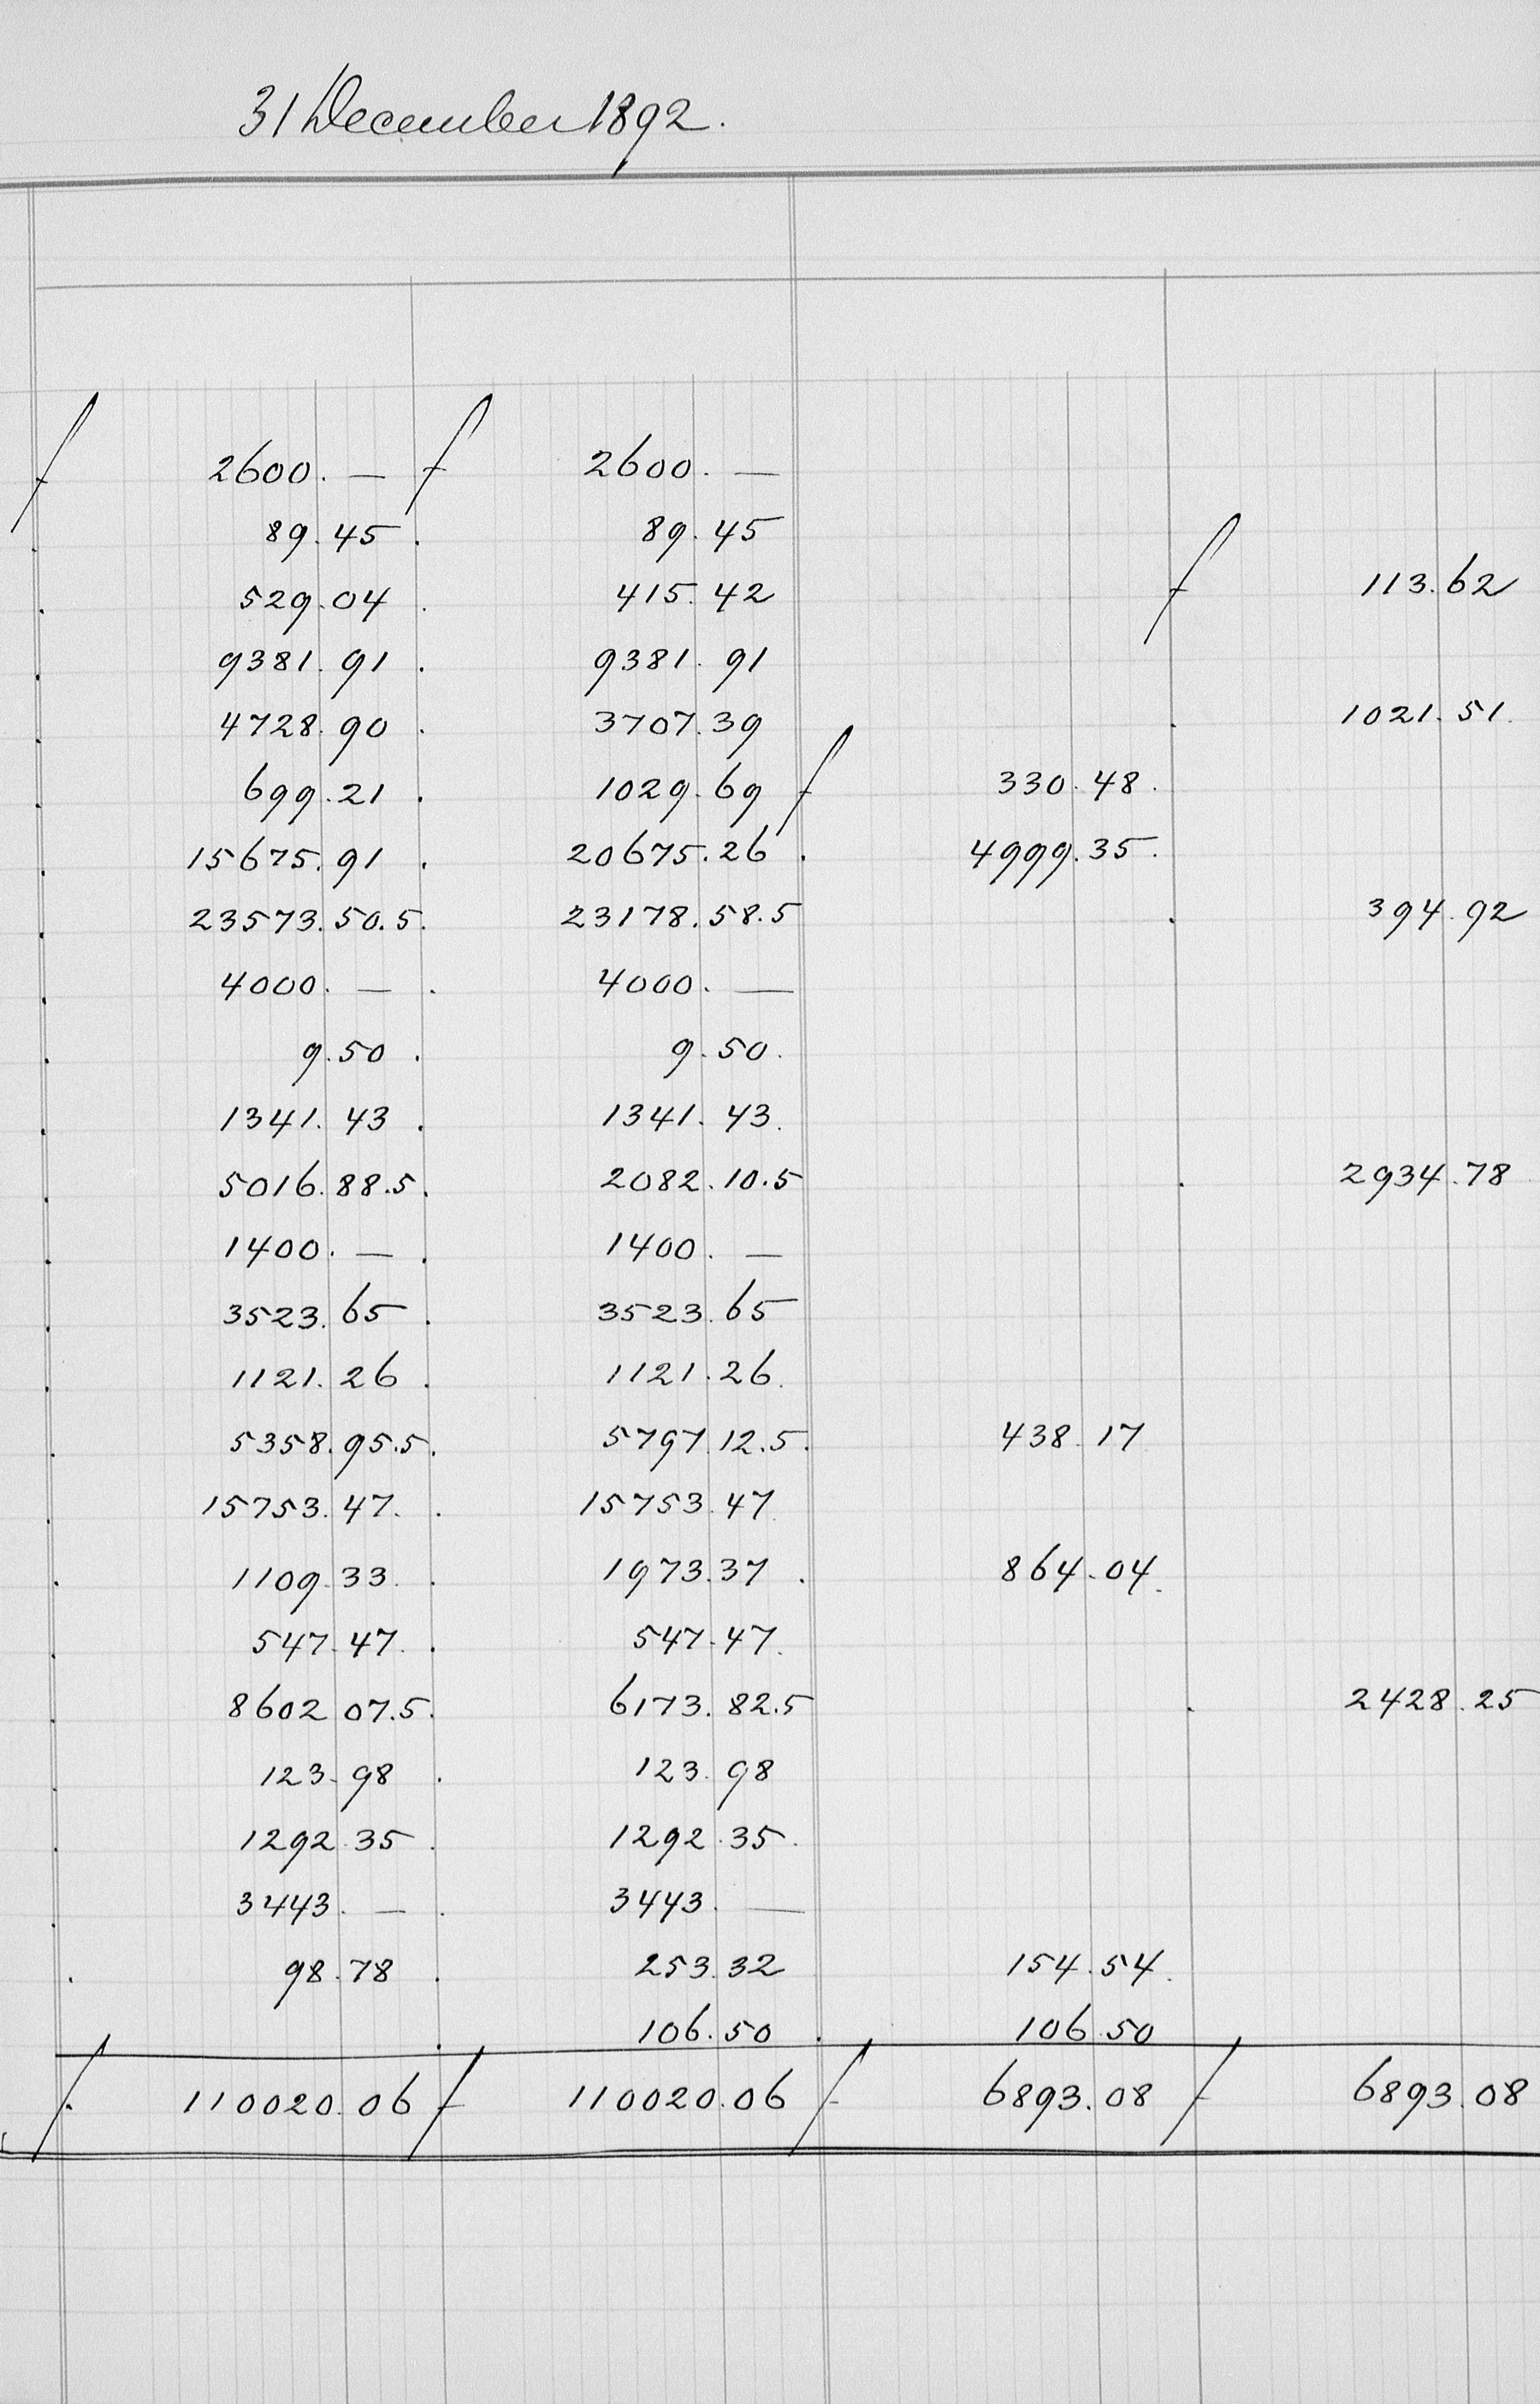 31 December 1892.
ƒ 2600. — ƒ 2600. —
. 89.45 . 89.45
. 529.04 . 415.42 ƒ 113.62
. 9381.91 . 9381.91
. 4728.90 . 3707.39 . 1021.51.
. 699.21 . 1029.69 ƒ 330.48.
. 15675.91 . 20675.26 . 4999.35.
. 23573.50.5. 23178.58.5 . 394.92
. 4000. — . 4000. —
. 9.50 . 9.50.
. 1341.43 . 1341.43.
. 5016.88.5. 2082.10.5 . 2934.78
. 1400. — . 1400. —
. 3523.65 . 3523.65
. 1121.26 . 1121.26.
. 5358.95.5. 5797.12.5. 438.17
. 15753.47. . 15753.47
. 1109.33. . 1973.37 . 864.04.
. 547.47. . 547.47.
. 8602 07.5. 6173.82.5 . 2428.25
. 123.98 . 123.98
. 1292.35 . 1292.35.
. 3443. — . 3443. —
. 98.78 . 253.32 154.54.
. 106.50 . 106.50
ƒ 110020.06 ƒ 110020.06 ƒ 6893.08 ƒ 6893.08